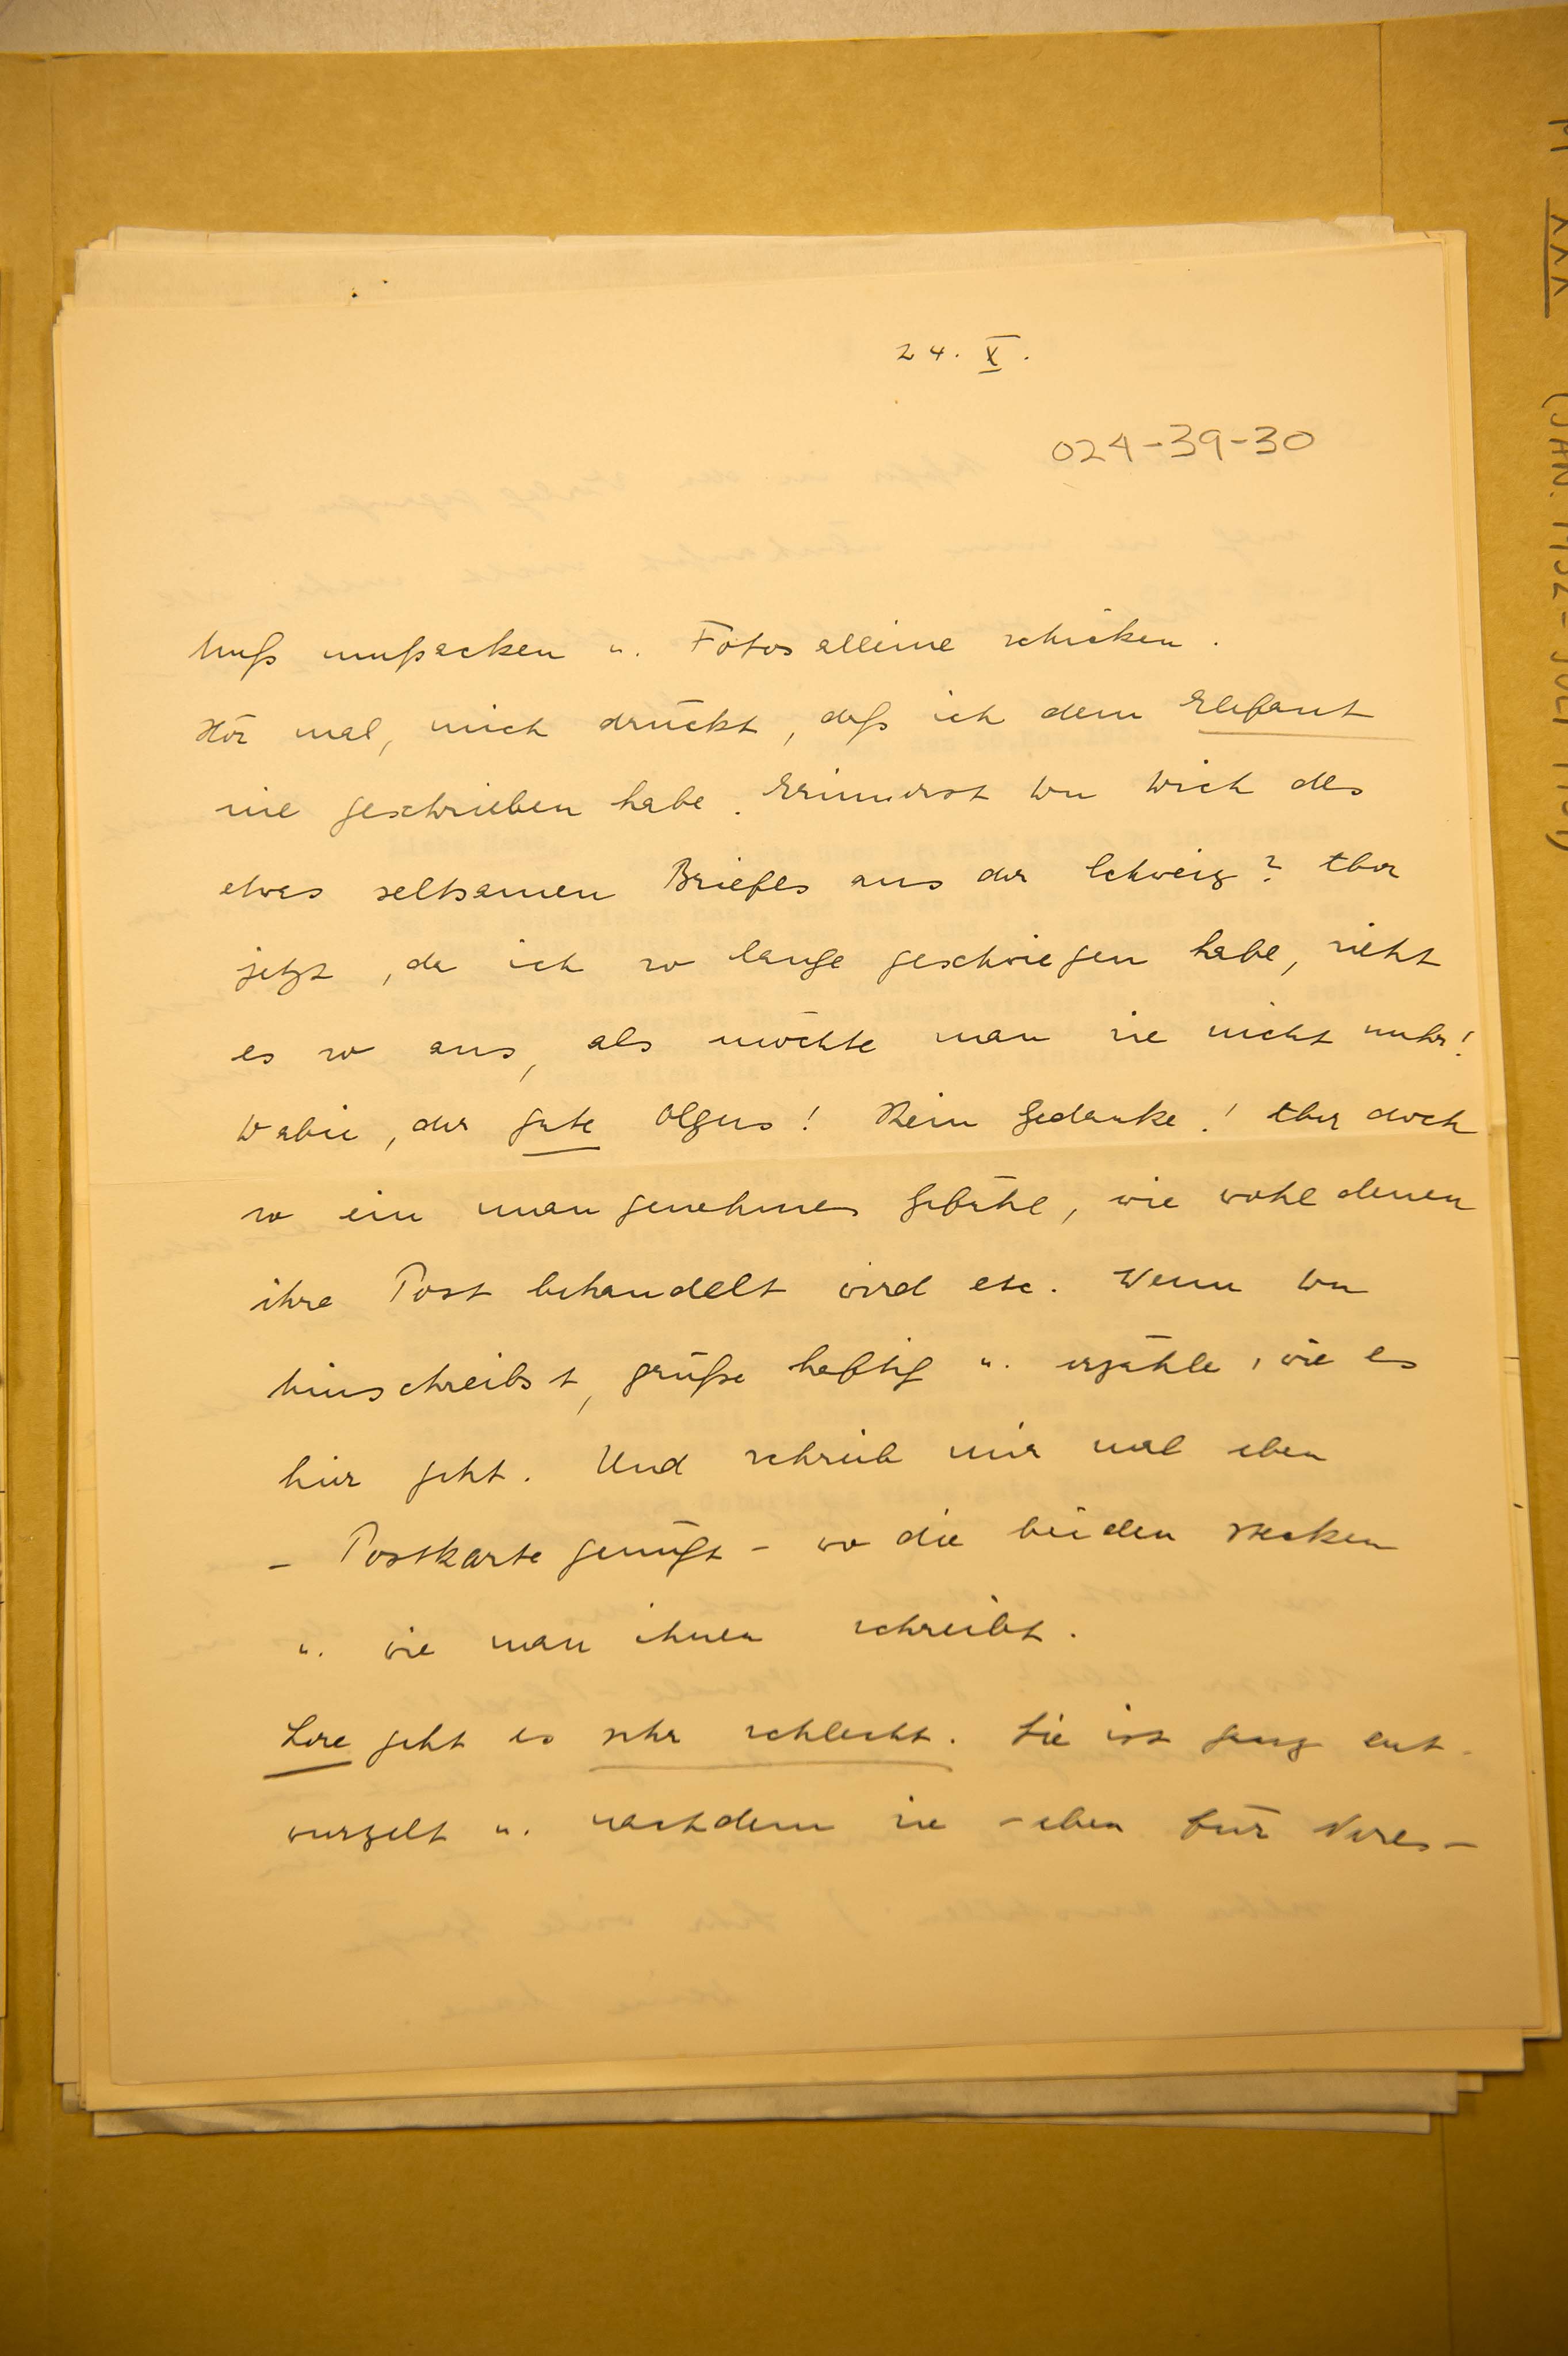 24. X.
024-39-30
Muß umpacken u. Fotos alleine schicken.
Hör mal, mich drückt, daß ich dem Elefant
nie geschrieben habe. Erinnerst Du Dich des
etwas seltsamen Briefes aus der Schweiz? Aber
jetzt, da ich so lange geschwiegen habe, sieht
es so aus, als möchte man sie nicht mehr!
Dabei, der gute Olgus! Kein Gedanke! Aber doch
so ein unangenehmes Gefühl, wie wohl denen
ihre Post behandelt wird etc. Wenn Du
hinschreibst, grüße heftig u. erzähle, wie es
hier geht. Und schreib mir mal eben
- Postkarte genügt - wo die beiden stecken
u. wie man ihnen schreibt.
Lore geht es sehr schlecht. Sie ist ganz ent-
wurzelt u. nachdem sie - eben für Veres -
XXX (JAN. 1932 - JULI